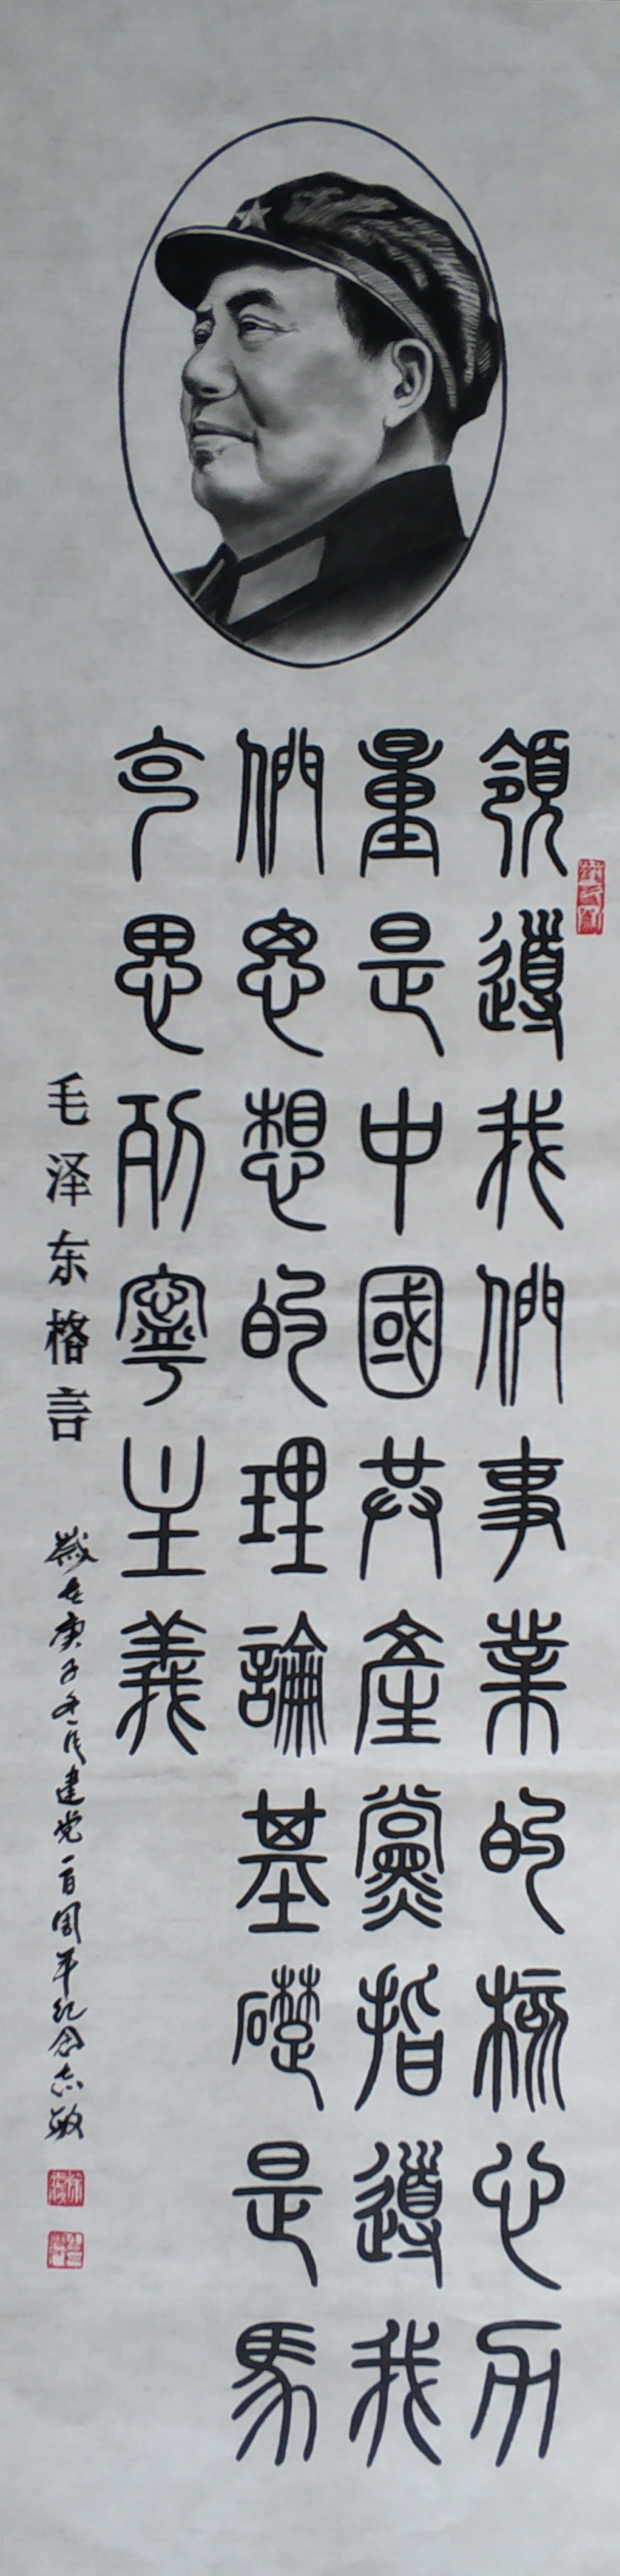 領導我們事業的核心力
量是中國共產黨指導我
們思想的理論基礎是馬
克思列寧主義
毛泽东格言
歲在庚子冬月建党一百周年纪念志敏